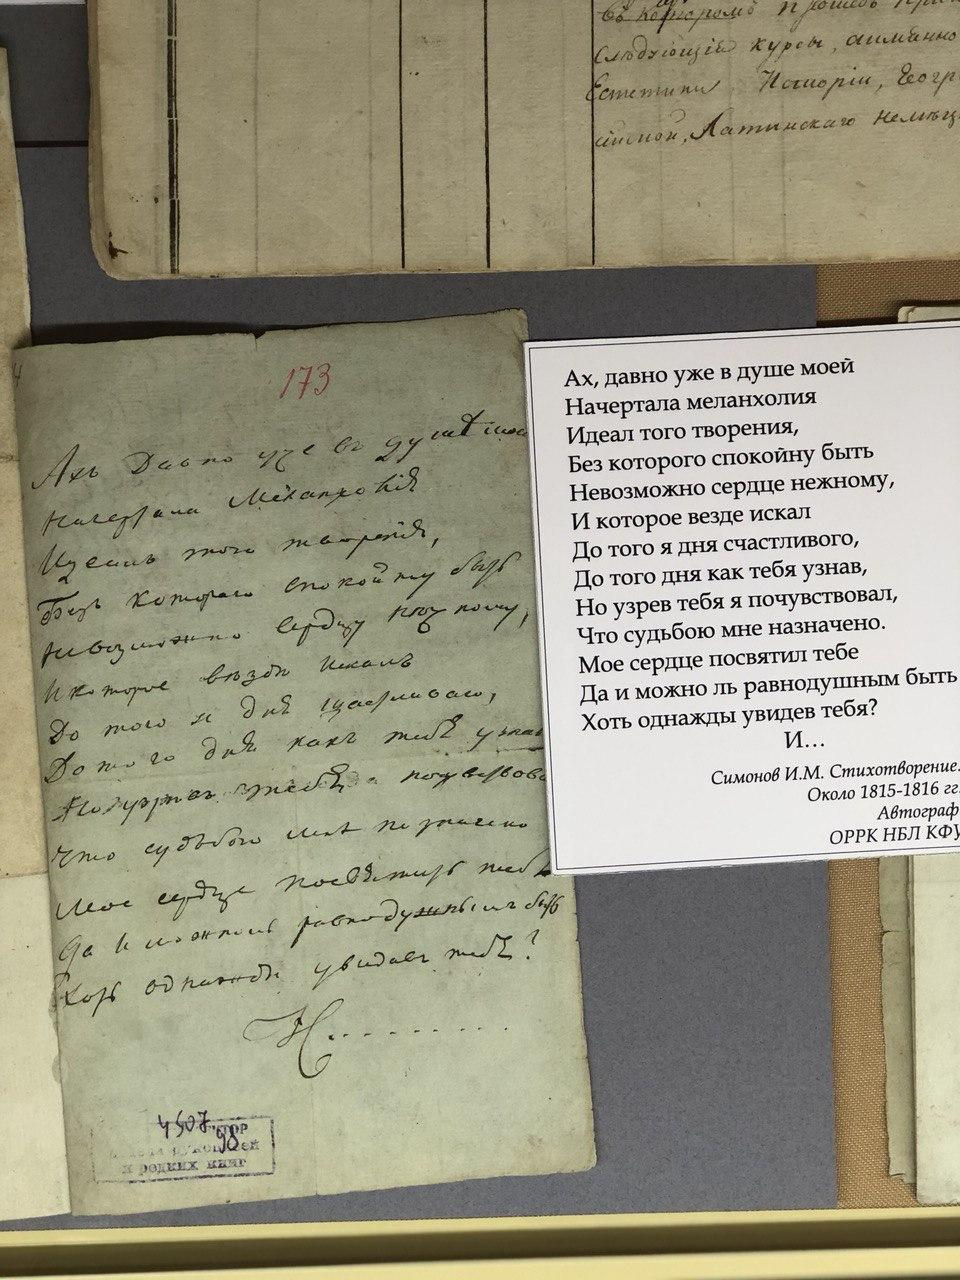 въ которомъ прошелъ
слѣдующіе курсы, аименно
Естетики Исторіи, Геогр
Латинскаго Немѣц
173
Ахъ давно уже въ душѣ моей
Начертала Меланхолія
Идеалъ того творенія,
Безъ котораго спокойну быть
Невозможно сердцу нѣжному,
И которое вѣздѣ искалъ
До того я дня щасливаго,
До того дня какъ тебя узнав
Но узрѣвъ тебя я почувствова
Что судьбою мнѣ назначено
Мое сердце посвятить тебѣ
Да и можноль равнодушнымъ быть
Хоть однажды увидевъ тебя?
И.........
4507.
98
и редких книг
Ах, давно уже в душе моей
Начертала меланхолия
Идеал того творения,
Без которого спокойну быть
Невозможно сердце нежному,
И которое везде искал
До того я дня счастливого,
До того дня как тебя узнав,
Но узрев тебя я почувствовал,
Что судьбою мне назначено.
Мое сердце посвятил тебе
Да и можно ль равнодушным быть
Хоть однажды увидев тебя?
И…
Симонов И.М. Стихотворение.
Около 1815-1816 гг.
Автограф
ОРРК НБЛ КФУ